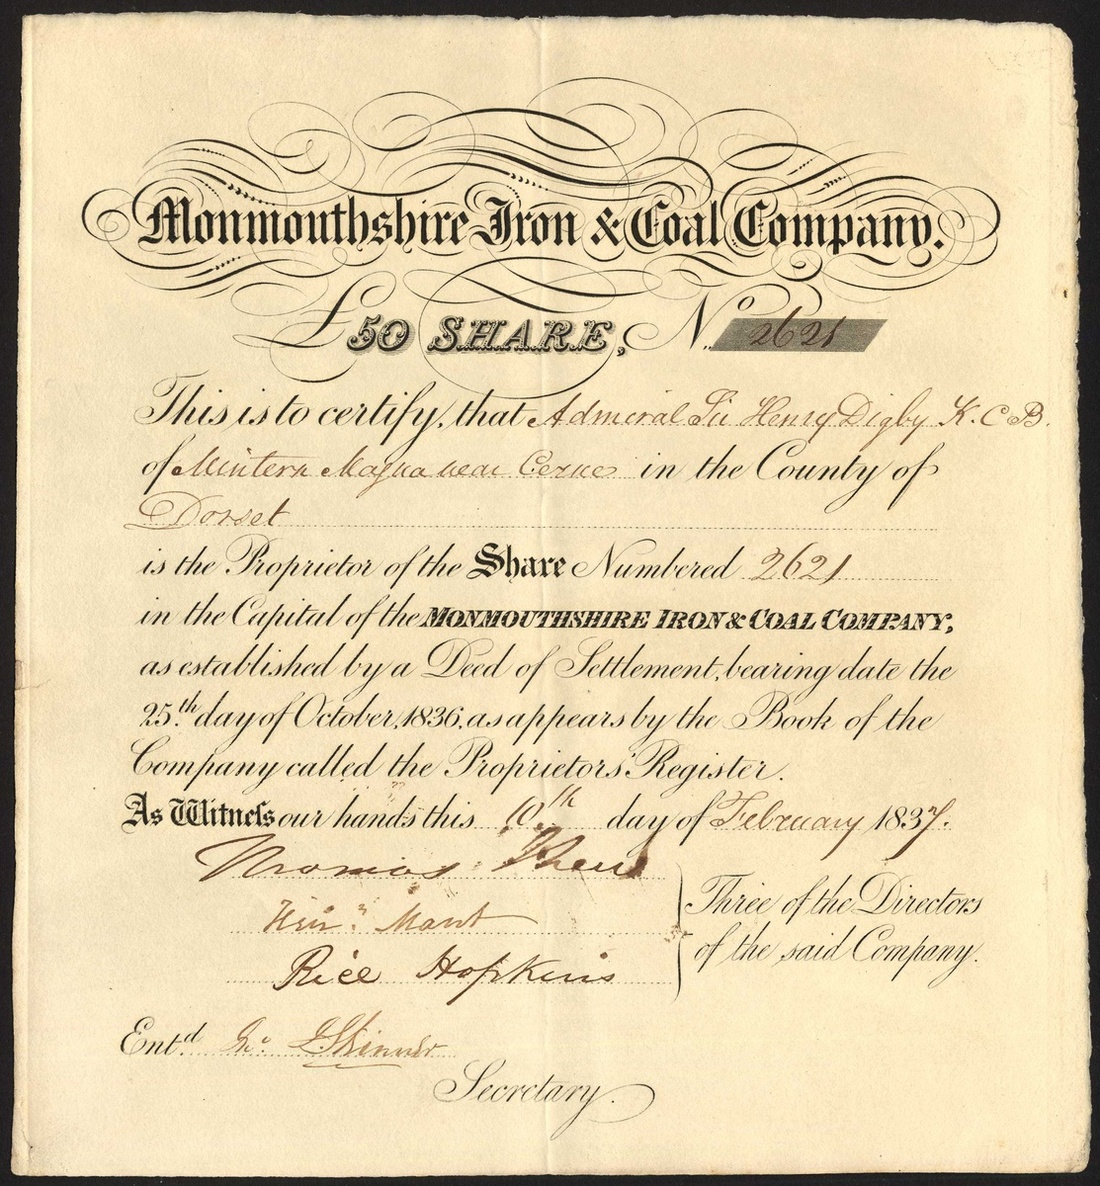 Monmouthshire Iron & Coal Company.
£50 SHARE, No. 2621
This is to certify, that Admiral Sir Henry Digby K.C.B.
of Mintern Magna near Cerne in the County of
Dorset
is the Proprietor of the Share Numbered 2621
in the Capital of the MONMOUTHSHIRE IRON & COAL COMPANY;
as established by a Deed of Settlement, bearing date the
25th. day of October, 1836, as appears by the Book of the
Company called the Proprietors' Register.
As Witneſs our hands this 10th day of February 1837.
Thomas
Mant
Rice Hopkins
Three of the Directors
of the said Company.
Entd. Skinner
Secretary.